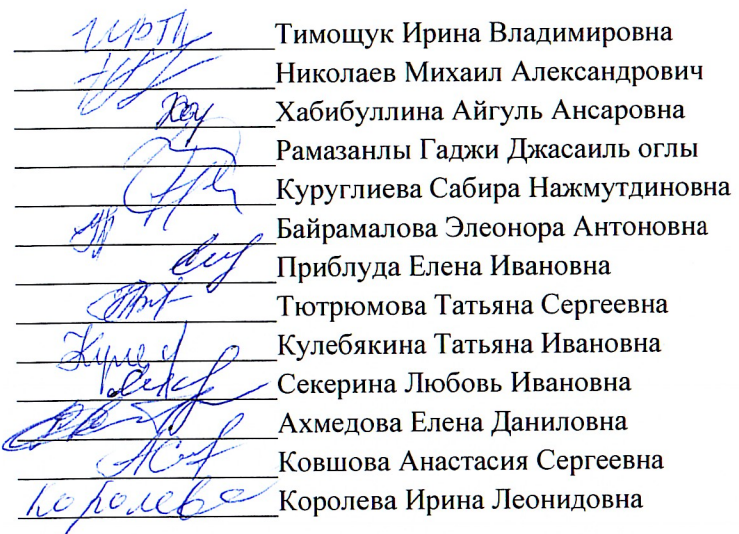 Тимощук Ирина Владимировна
Николаев Михаил Александрович
Хабибуллина Айгуль Ансаровна
Рамазанлы Гаджи Джасаиль оглы
Куруглиева Сабира Нажмутдиновна
Байрамалова Элеонора Антоновна
Приблуда Елена Ивановна
Тютрюмова Татьяна Сергеевна
Кулебякина Татьяна Ивановна
Секерина Любовь Ивановна
Ахмедова Елена Даниловна
Ковшова Анастасия Сергеевна
Королева Королева Ирина Леонидовна